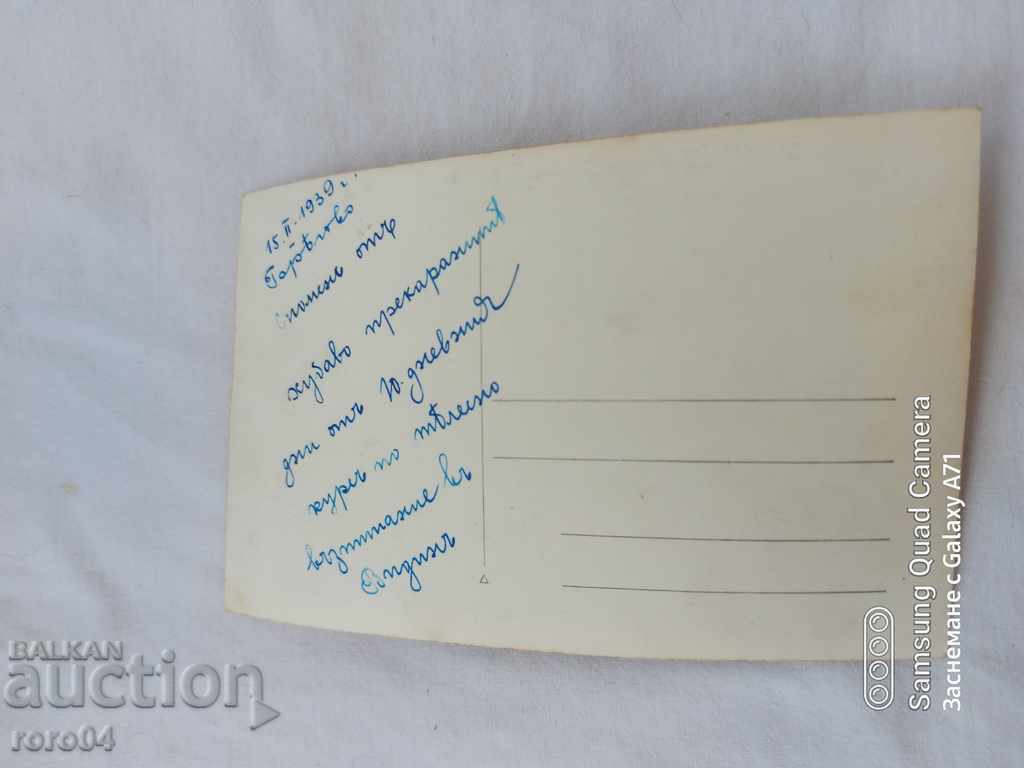 15.II.1939 г.
споменъ отъ
хубаво прекаранитѣ
дни отъ 10. дневния
курсъ по тѣлесно
възпитание въ
Видинъ
BALKAN
auction
roro04
Samsung Quad Camera
Заснемане с Galaxy A71